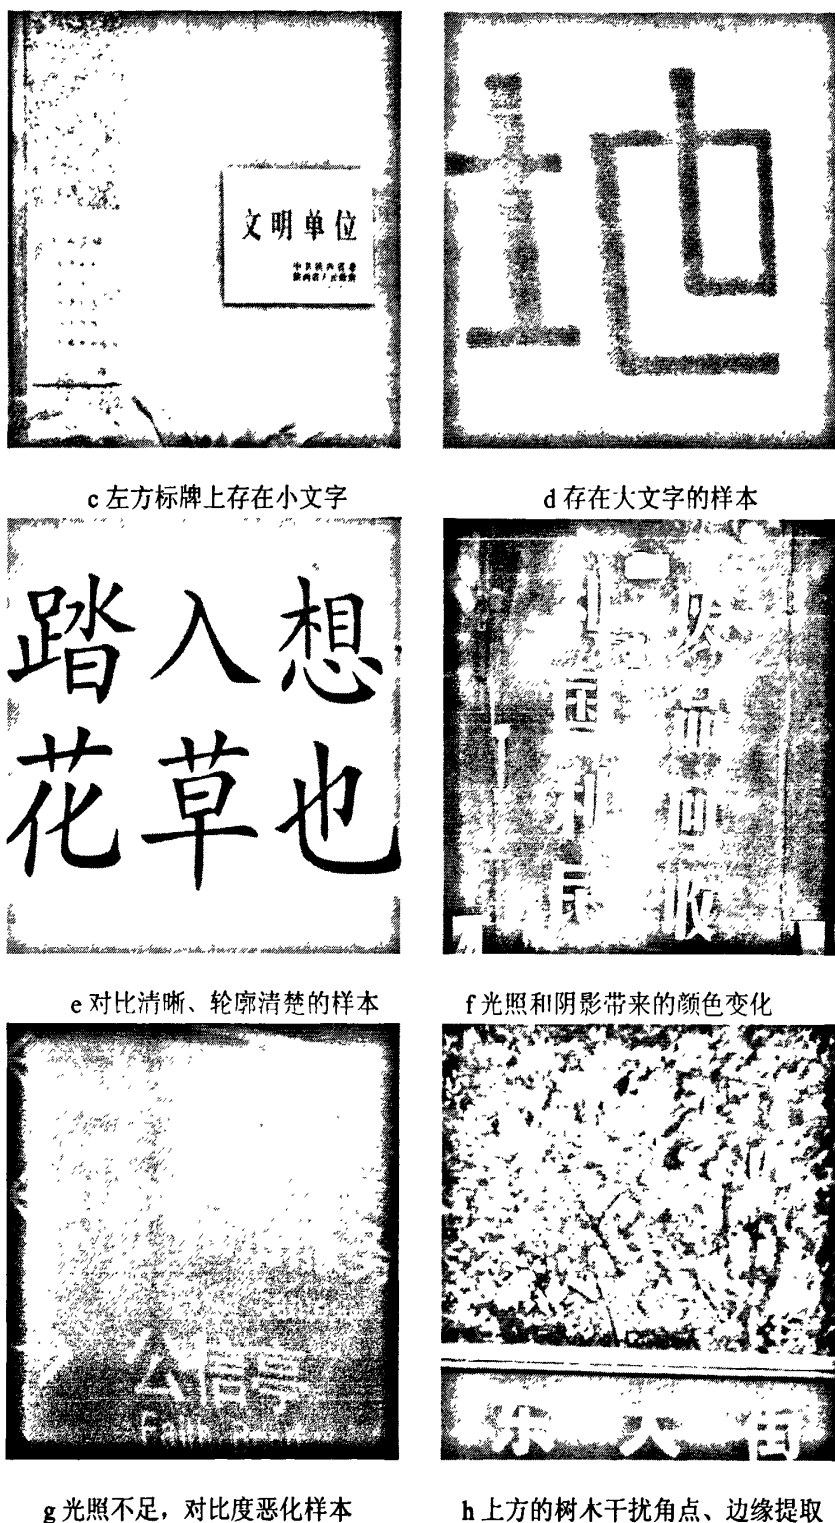 文明单位
地
c 左方标牌上存在小文字
d 存在大文字的样本
踏入想
花草也
回收
e 对比清晰、轮廓清楚的样本
f 光照和阴影带来的颜色变化
东大街
g 光照不足，对比度恶化样本
h 上方的树木干扰角点、边缘提取